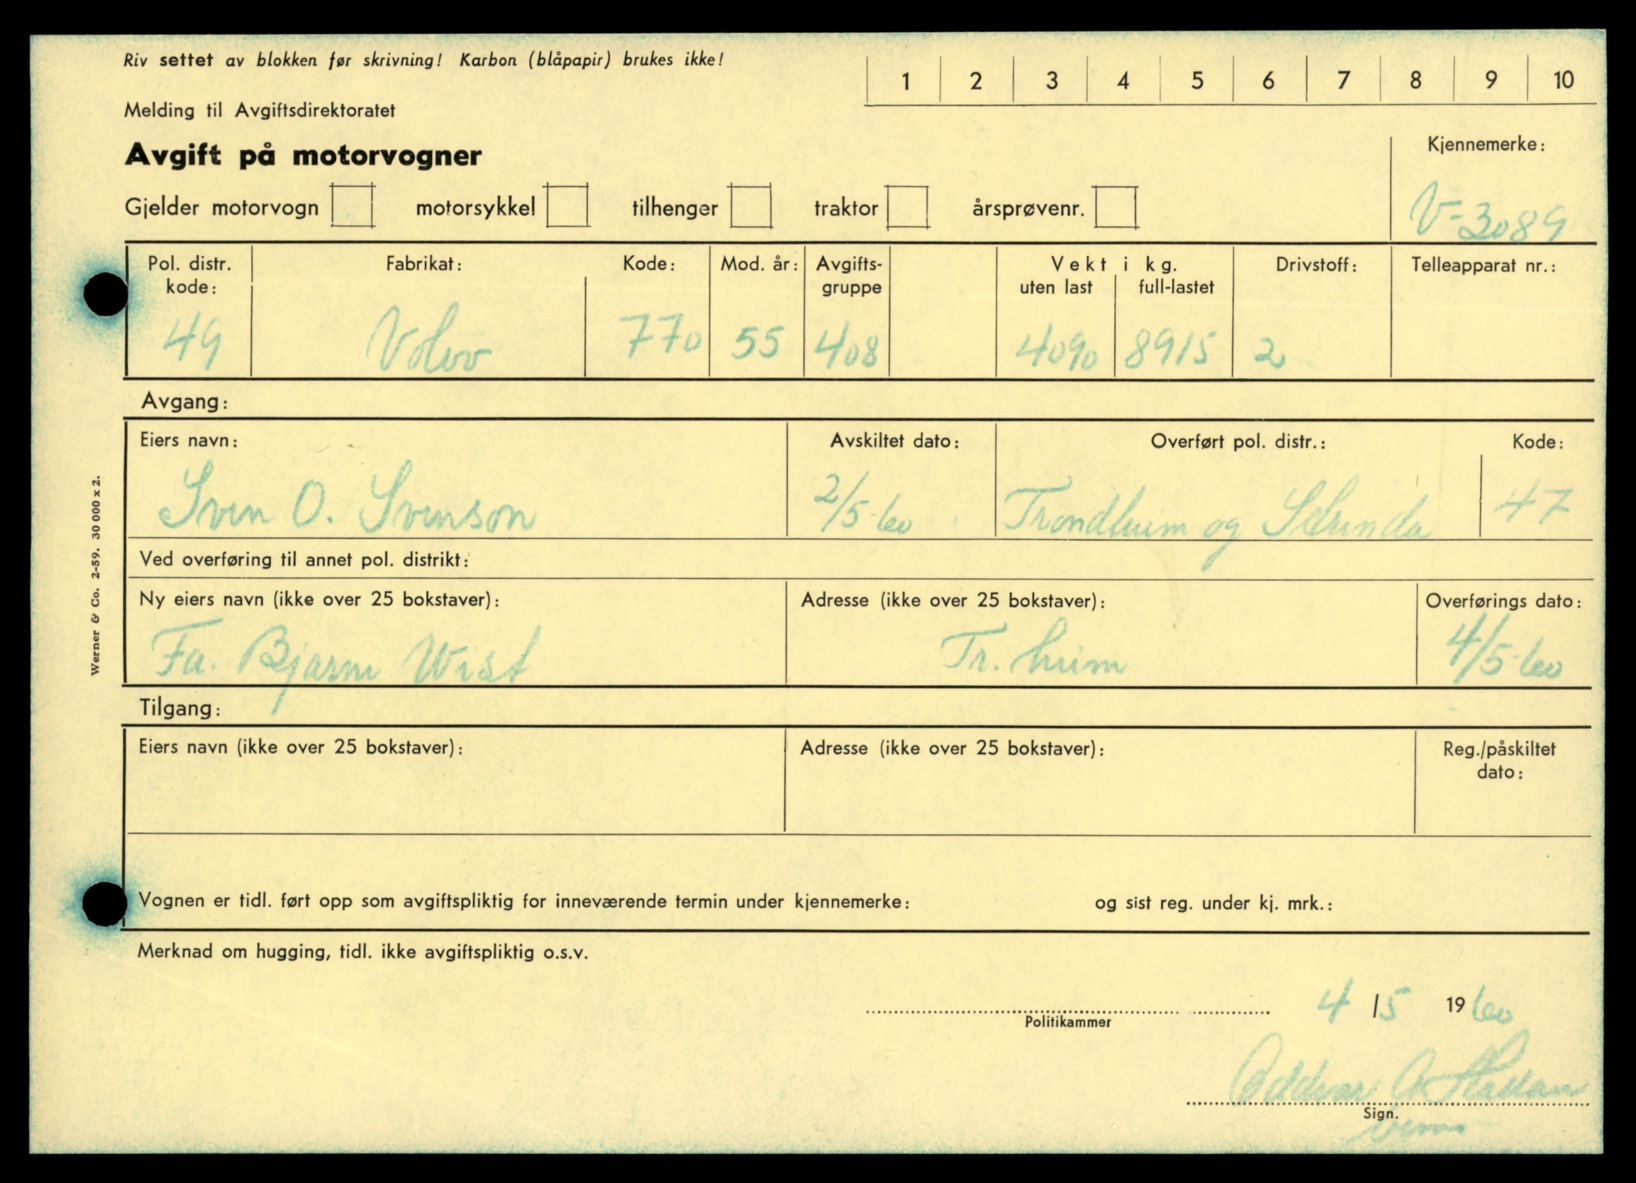 Riv settet av blokken før skrivning! Karbon (blåpapir) brukes ikke!
1 2 3 4 5 6 7 8 9 10
Melding til Avgiftsdirektoratet
Avgift på motorvogner
Kjennemerke:
V-3089
Gjelder motorvogn motorsykkel tilhenger traktor årsprøvenr.
Pol. distr. kode: Fabrikat: Kode: Mod. år: Avgifts-gruppe Vekt i kg. uten last full-lastet Drivstoff: Telleapparat nr.:
49 Volvo 770 55 408 4090 8915 2
Avgang:
Eiers navn: Avskiltet dato: Overført pol. distr.: Kode:
Sven O. Svenson 2/5-60 Trondheim og Strinda 47
Ved overføring til annet pol. distrikt:
Ny eiers navn (ikke over 25 bokstaver): Adresse (ikke over 25 bokstaver): Overførings dato:
Fa. Bjarne Wist Tr.heim 4/5-60
Tilgang:
Eiers navn (ikke over 25 bokstaver): Adresse (ikke over 25 bokstaver): Reg./påskiltet dato:
Vognen er tidl. ført opp som avgiftspliktig for inneværende termin under kjennemerke: og sist reg. under kj. mrk.:
Merknad om hugging, tidl. ikke avgiftspliktig o.s.v.
4/5 1960
Politikammer
Oddvar
Sign.
Werner & Co. 2-59. 30 000 x 2.